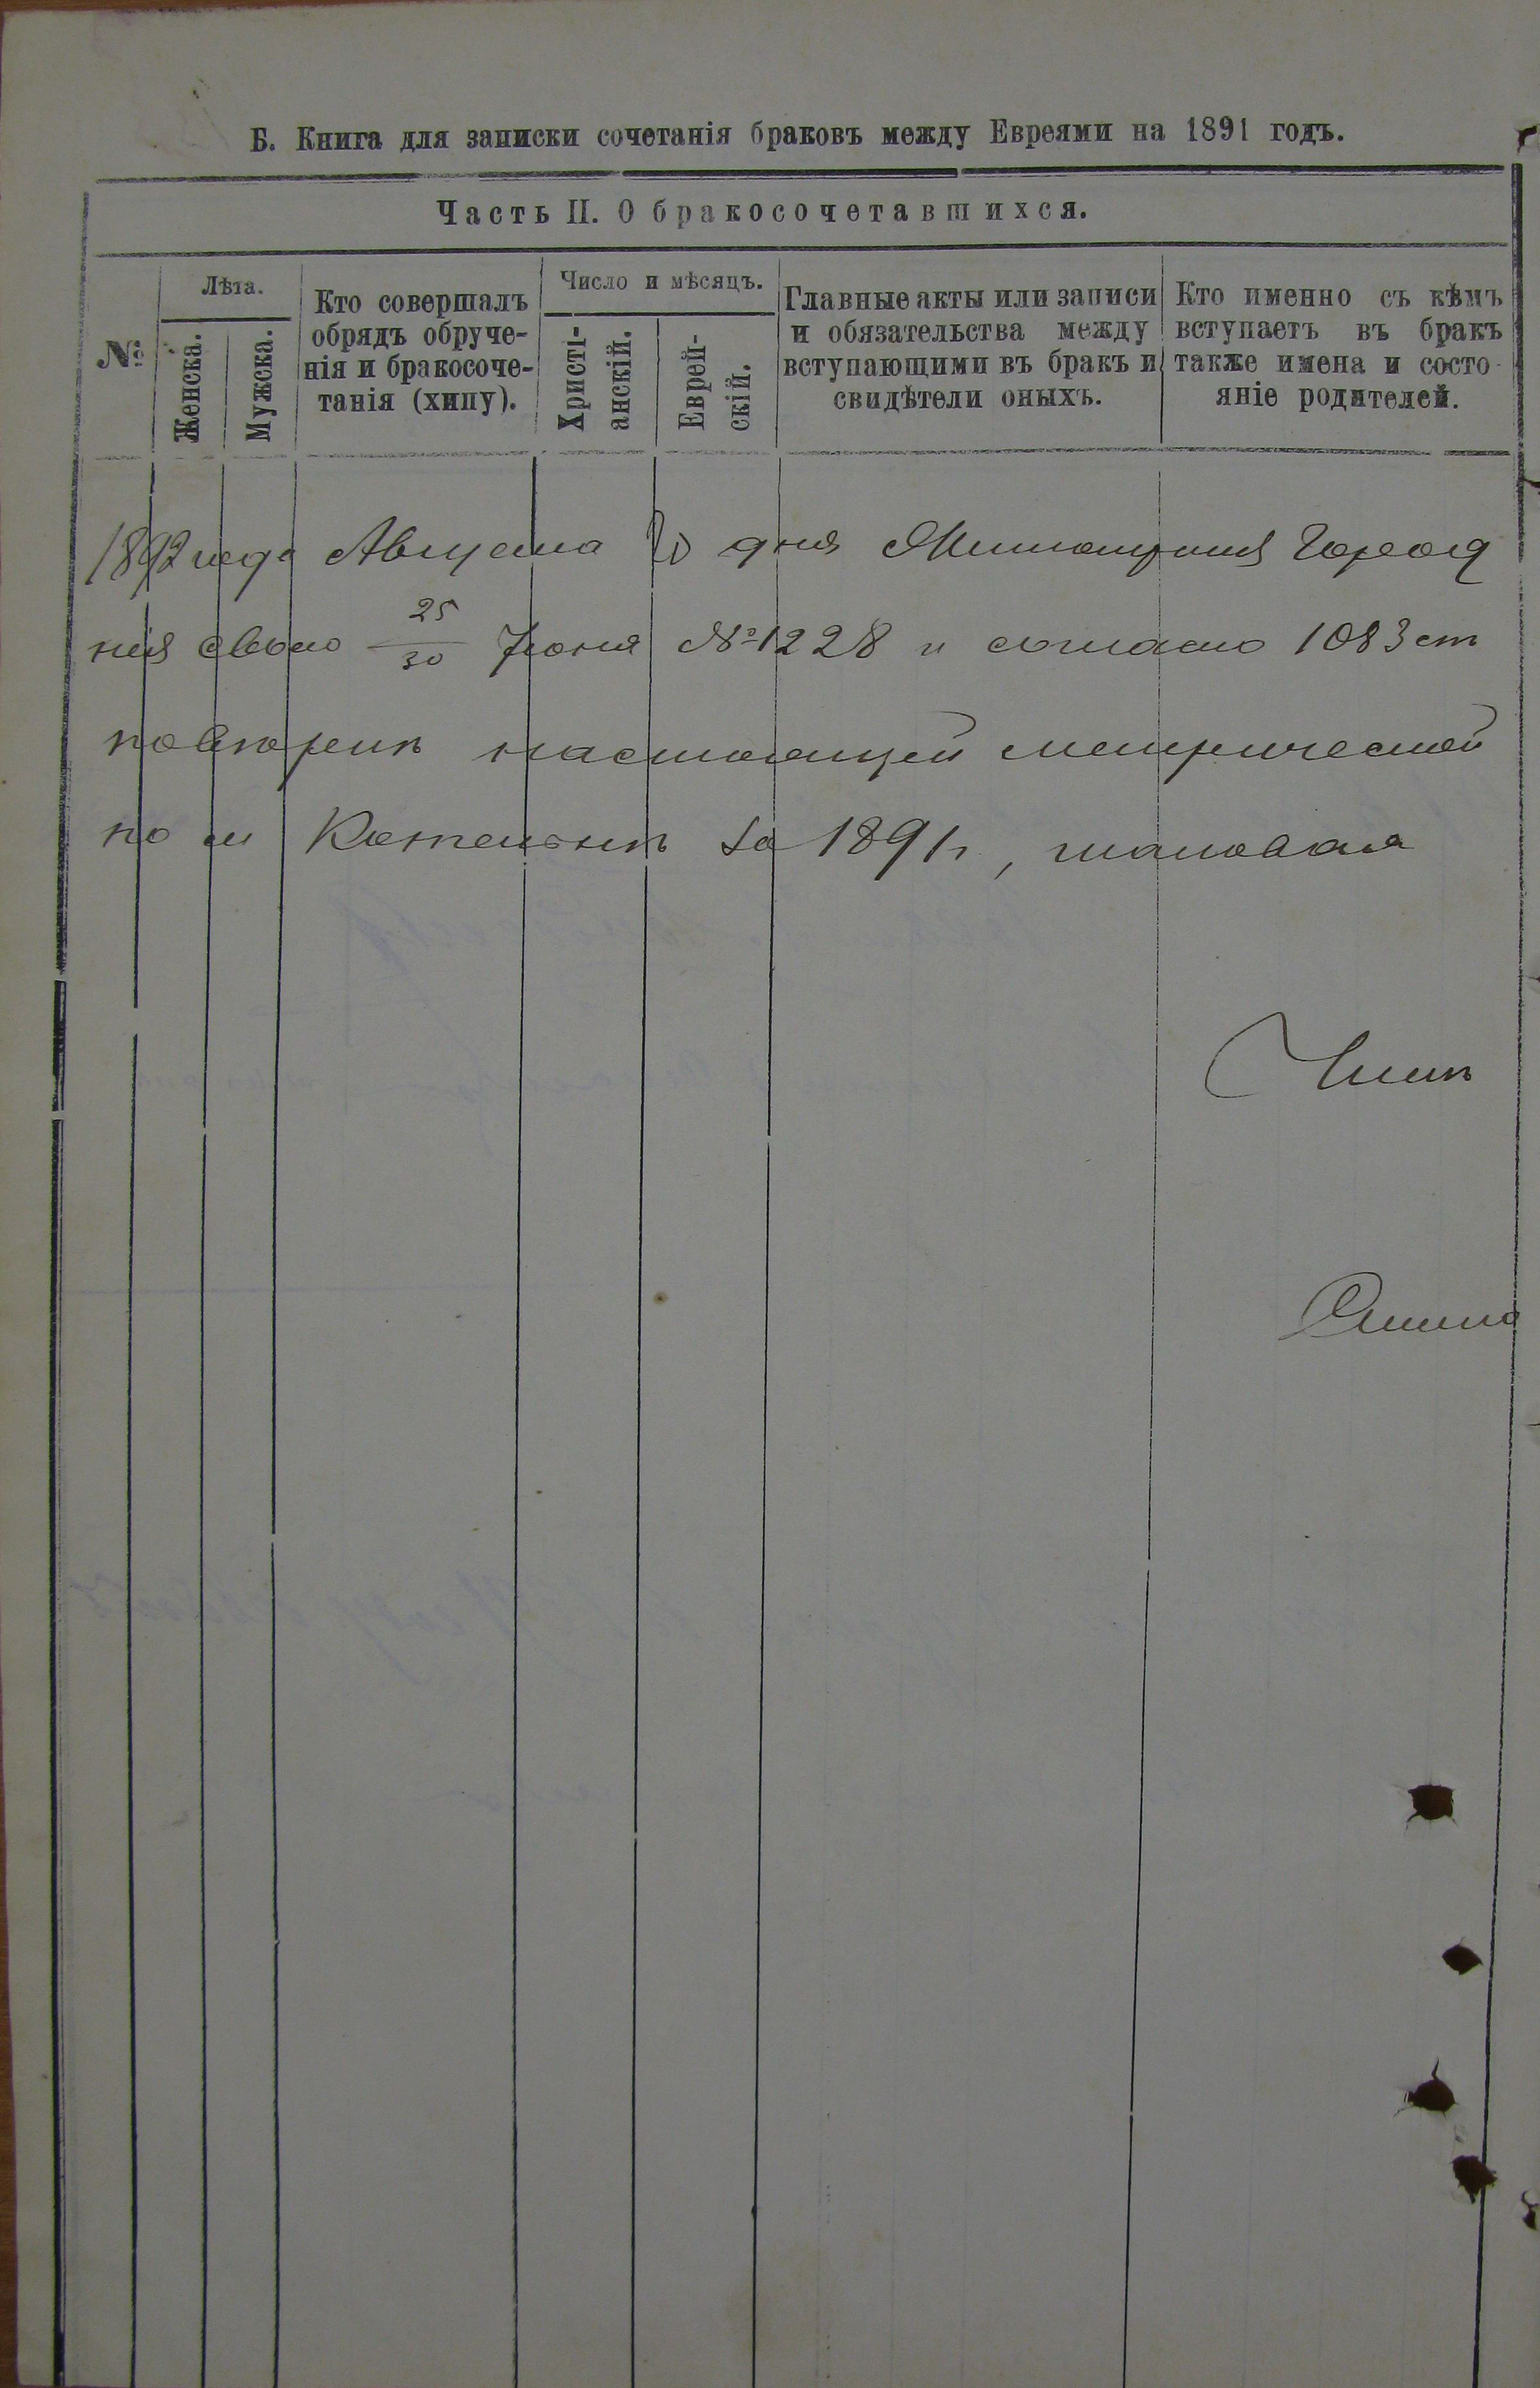 Б. Книга для записки сочетанія браковъ между Евреями на 1891 годъ.
Часть II. О бракосочетавшихся.
№
Лѣта.
Женска.
Мужска.
Кто совершалъ
обрядъ обруче-
нія и бракосоче-
танія (хипу).
Число и мѣсяцъ.
Христі-
анскій.
Еврей-
скій.
Главные акты или записи
и обязательства между
вступающими въ бракъ и
свидѣтели оныхъ.
Кто именно съ кѣмъ
вступаетъ въ бракъ
также имена и состо-
яніе родителей.
1892 года Августа дня Житомірская Город
нія своего 25/30 Іюня №1228 и согласно 1083 ст
повѣрять настоящей метрической
по м за 1891 г, таковая
Член